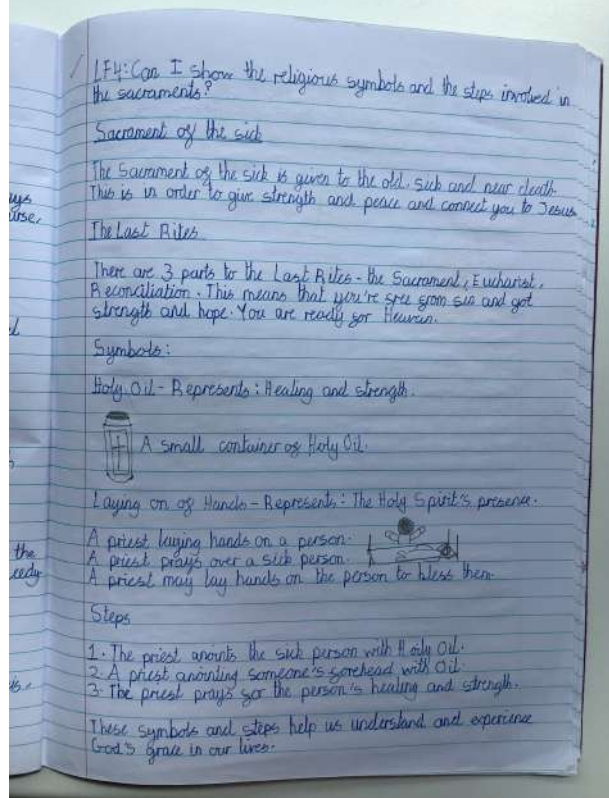 LF4: Can I show the religious symbols and the steps involved in
the sacraments?
Sacrament of the sick
The Sacrament of the sick is given to the old, sick and near death.
This is in order to give strength and peace and connect you to Jesus
The Last Rites
There are 3 parts to the Last Rites - the Sacrament, Eucharist,
Reconciliation. This means that you're free from sin and got
strength and hope. You are ready for Heaven.
Symbols:
Holy Oil - Represents: Healing and strength.
A small container of Holy Oil.
Laying on of Hands - Represents: The Holy Spirit's presence.
A priest laying hands on a person.
A priest prays over a sick person.
A priest may lay hands on the person to bless them.
Steps
1. The priest anoints the sick person with Holy Oil.
2. A priest anointing someone's forehead with Oil.
3. The priest prays for the person's healing and strength.
These symbols and steps help us understand and experience
God's grace in our lives.
the